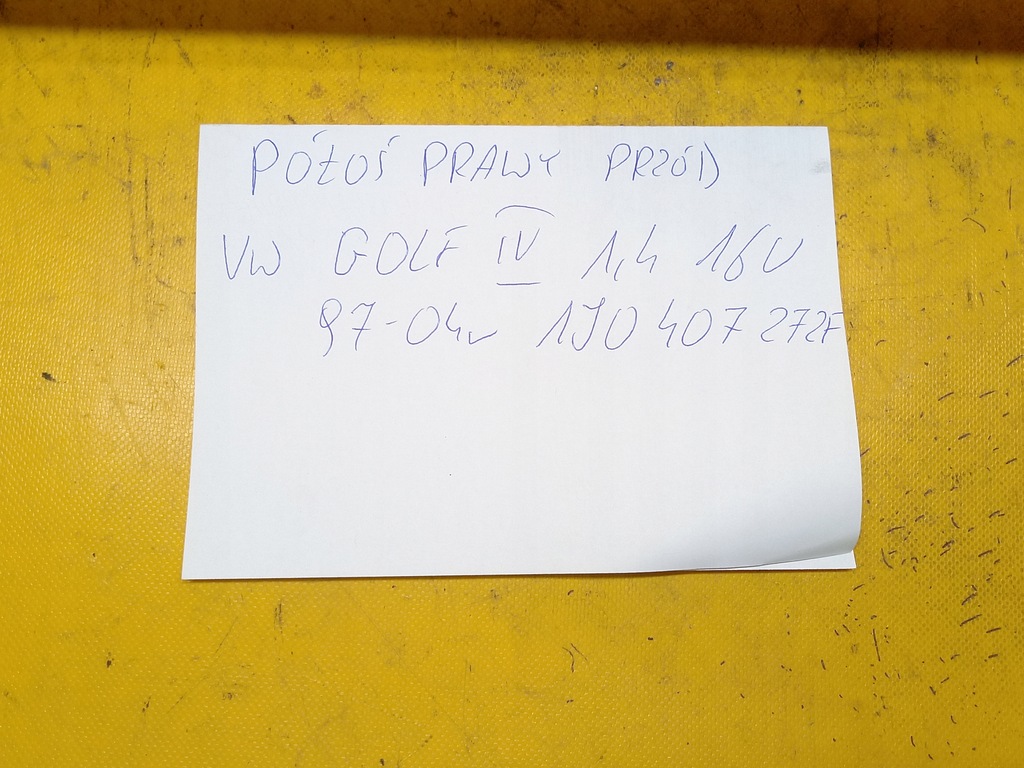 PÓŁOŚ PRAWY PRZÓD
VW GOLF IV 1,4 16V
97-04r 1J0 407 272F